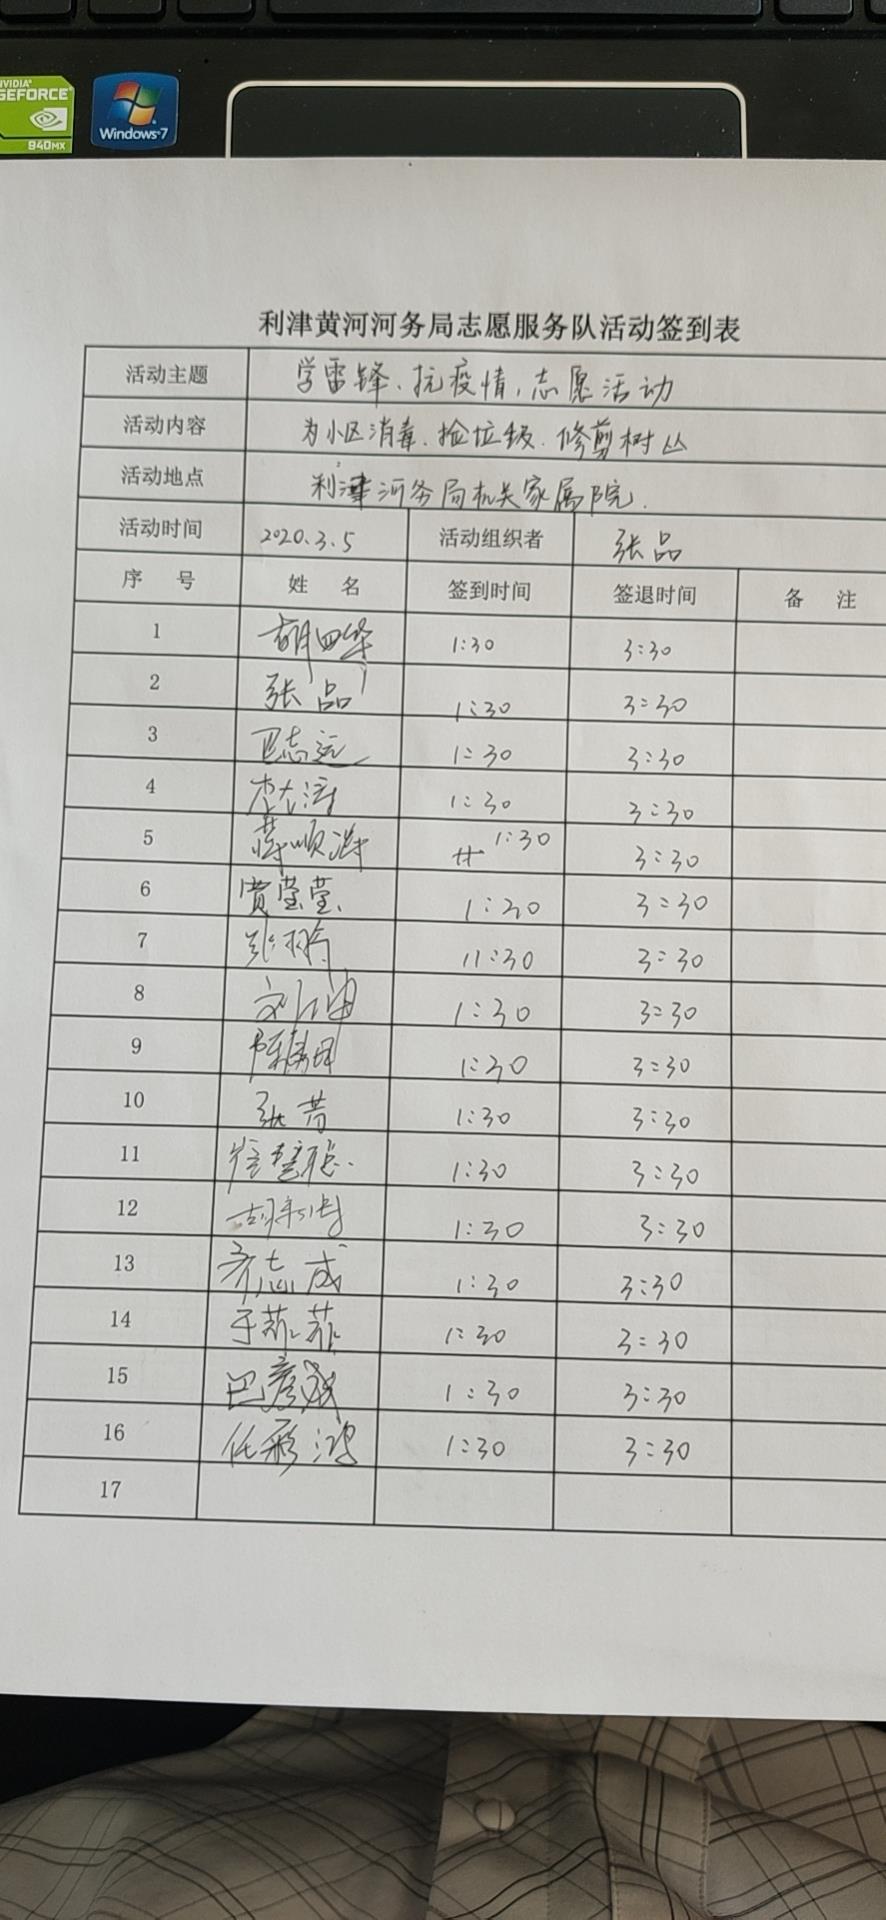 NVIDIA
GEFORCE
940MX
Windows 7
利津黄河河务局志愿服务队活动签到表
活动主题 学雷锋、抗疫情,志愿活动
活动内容 为小区消毒、捡垃圾、修剪树丛
活动地点 利津河务局机关家属院.
活动时间 2020.3.5 活动组织者 张品
序 号 姓 名 签到时间 签退时间 备 注
1 1:30 3:30
2 张品 1:30 3:30
3 志远 1:30 3:30
4 1:30 3:30
5 1:30 3:30
6 贾莹莹 1:30 3:30
7 11:30 3:30
8 1:30 3:30
9 1:30 3:30
10 张芳 1:30 3:30
11 1:30 3:30
12 1:30 3:30
13 齐志成 1:30 3:30
14 于菲菲 1:30 3:30
15 1:30 3:30
16 任彩鸿 1:30 3:30
17